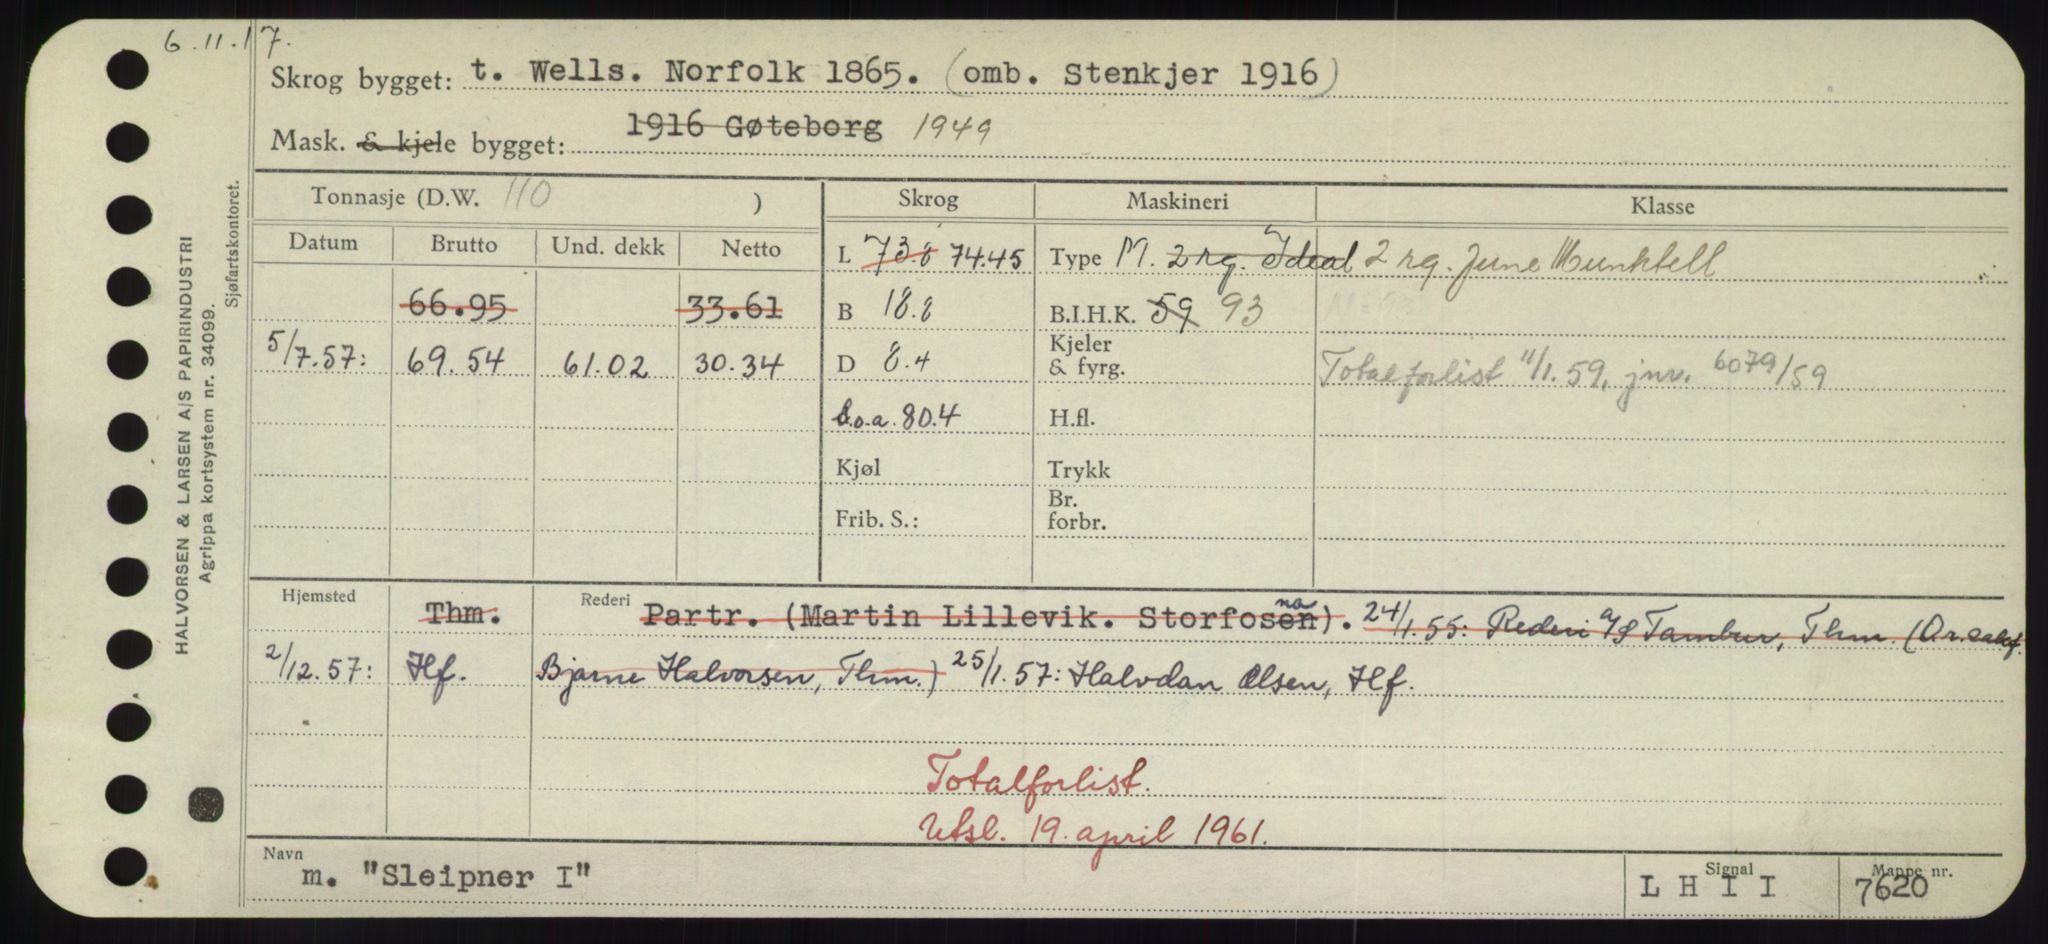 6.11.17.
Skrog bygget: t. Wells. Norfolk 1865. (omb. Stenkjer 1916)
Mask. & kjele bygget: 1916 Gøteborg 1949
Tonnasje (D.W. 110 ) Skrog Maskineri Klasse
Datum Brutto Und. dekk Netto
L 73.8 74.45 Type M. 2 rg. Ideal 2 rg. June Munktell
66.95 33.61 B 18.8 B.I.H.K. 59 93
5/7.57: 69.54 61.02 30.34 D 8.4 Kjeler & fyrg. Totalforlist 11/1.59, jnr. 6079/59
L.o.a. 80.4 H.fl.
Kjøl Trykk
Frib. S.: Br. forbr.
Hjemsted Rederi
Thm. Partr. (Martin Lillevik. Storfosen na). 24/1.55: Rederi A/S Tambur, Thm. (
2/12.57: Hf. Bjarne Halvorsen, Thm.) 25/1.57: Halvdan Olsen, Hf.
Totalforlist.
Utsl. 19. april 1961.
Navn Signal Mappe nr.
m. "Sleipner I" L H I I 7620
HALVORSEN & LARSEN A/S PAPIRINDUSTRI
Agrippa kortsystem nr. 34099.
Sjøfartskontoret.